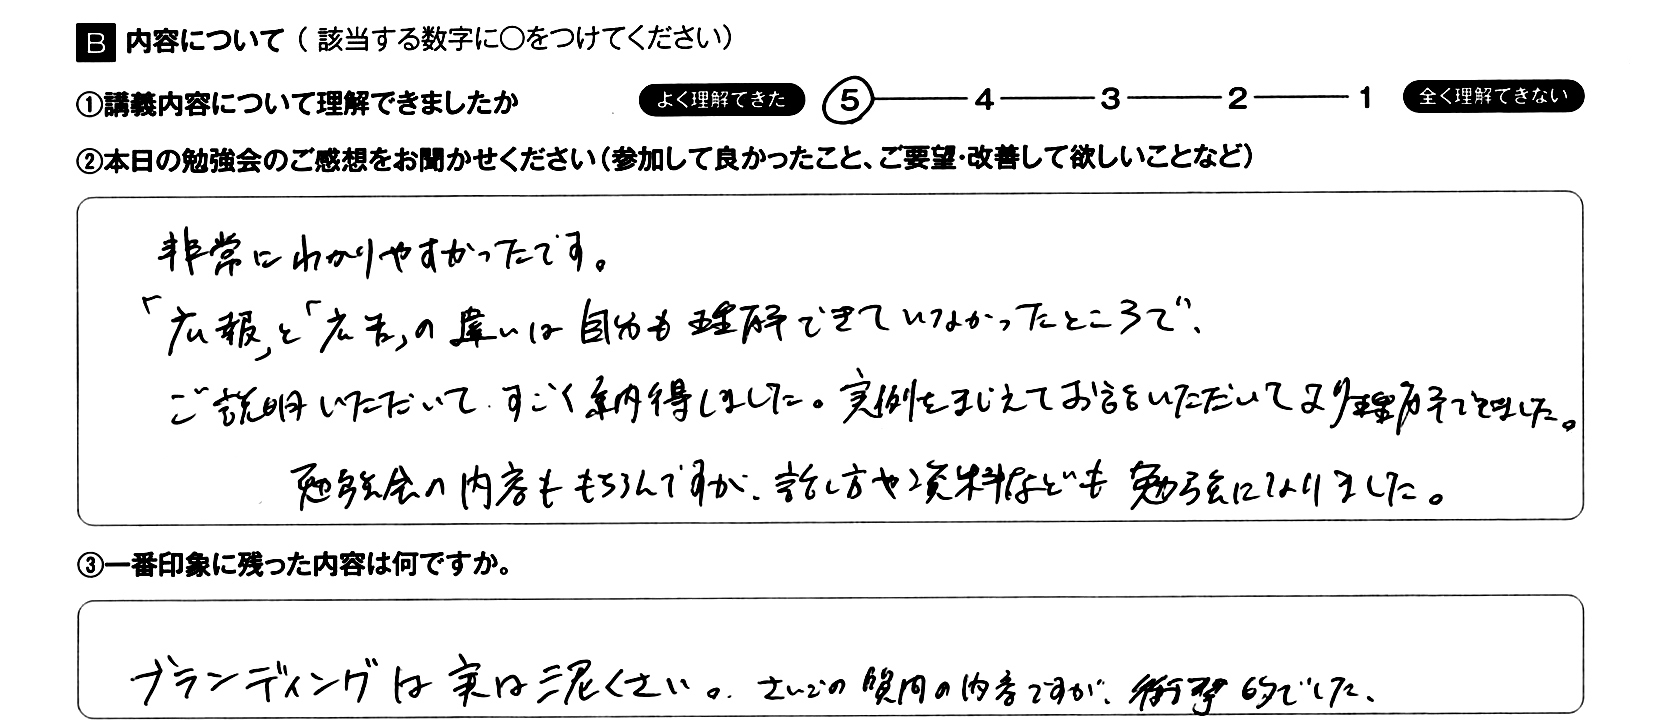 B 内容について（該当する数字に○をつけてください）
①講義内容について理解できましたか よく理解できた 5 4 3 2 1 全く理解できない
②本日の勉強会のご感想をお聞かせください（参加して良かったこと、ご要望・改善して欲しいことなど）
非常にわかりやすかったです。
「広報」と「広告」の違いは自分も理解できていなかったところで、
ご説明いただいて、すごく納得しました。実例をまじえてお話いただいてより理解できました。
勉強会の内容ももちろんですが、話し方や資料なども勉強になりました。
③一番印象に残った内容は何ですか。
ブランディングは実は泥くさい。さいごの質問の内容ですが、衝撃的でした、